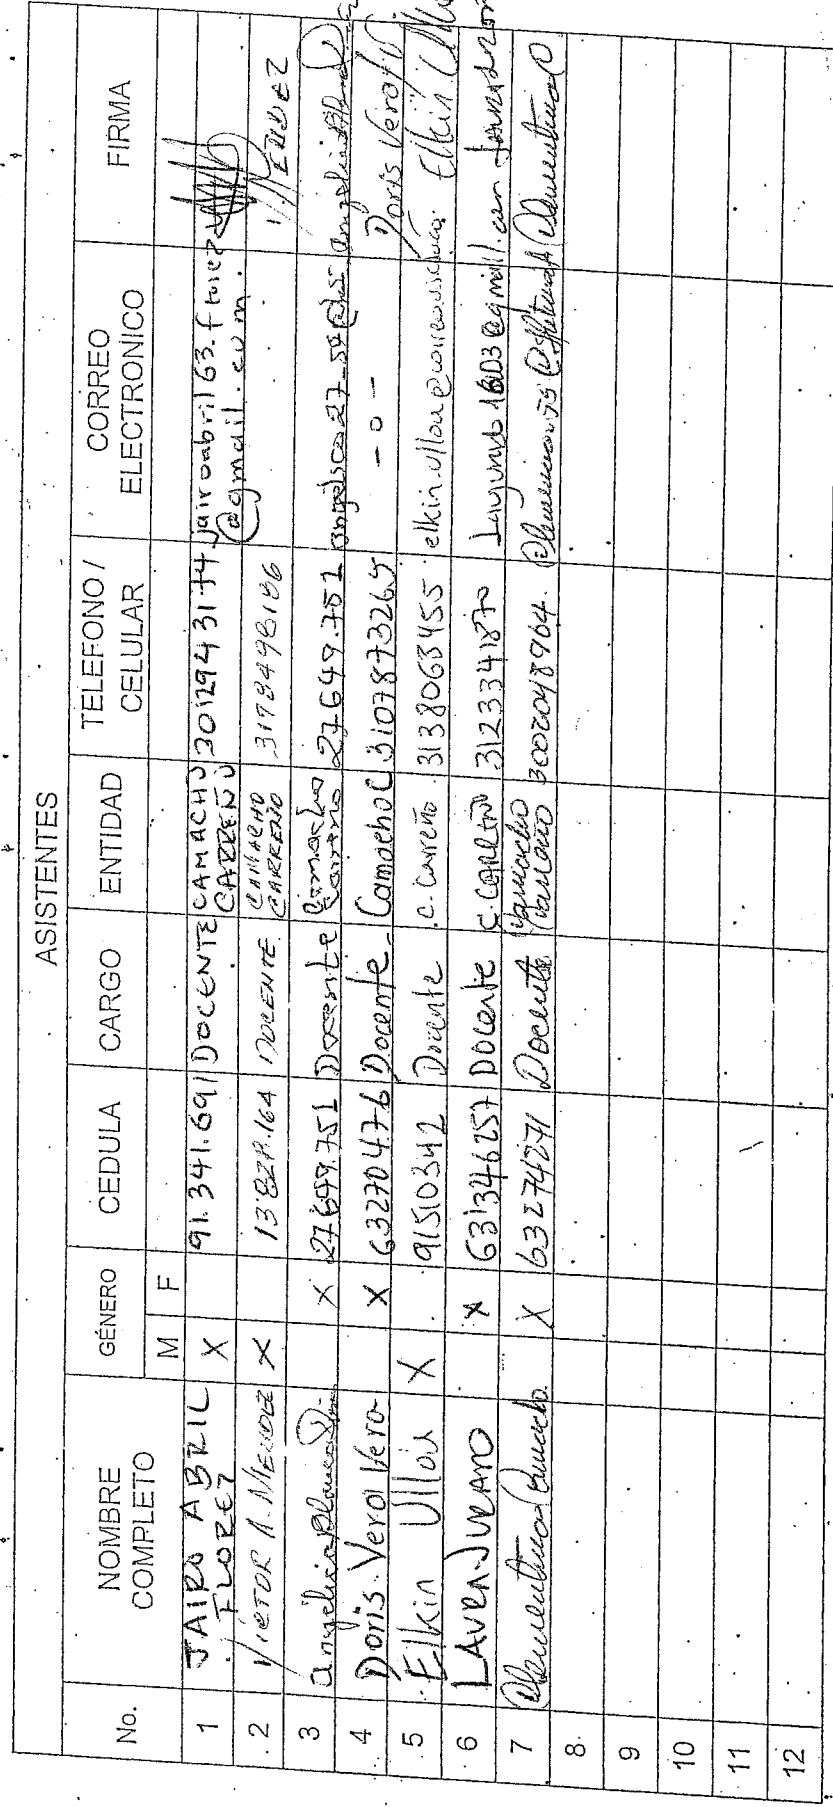 ASISTENTES
No. NOMBRE COMPLETO GÉNERO M F CEDULA CARGO ENTIDAD TELEFONO / CELULAR CORREO ELECTRONICO FIRMA
1 JAIRO ABRIL FLOREZ X 91.341.691 DOCENTE CAMACHO CARREÑO 3012943174 jairoabril63.florez@gmail.com
2 VICTOR A. MENDEZ X DOCENTE CAMACHO CARREÑO 3178498186 MENDEZ
3 Angelica Blanco X 27649.751 Docente Camacho Carreno 27649.751
4 Doris Vera Vera X 63270476 Docente Camacho C 3107873265 -o- Doris Vera V
5 Elkin Ulloa X 91510342 Docente C. Carreño 3138063455 Elkin
6 LAURA JURADO X 63'346257 Docente C. CARREÑO 3123341870
7 Clementina Camacho X 63274271 Docente Camacho Carreno 3002048964 Clementina
8
9
10
11
12